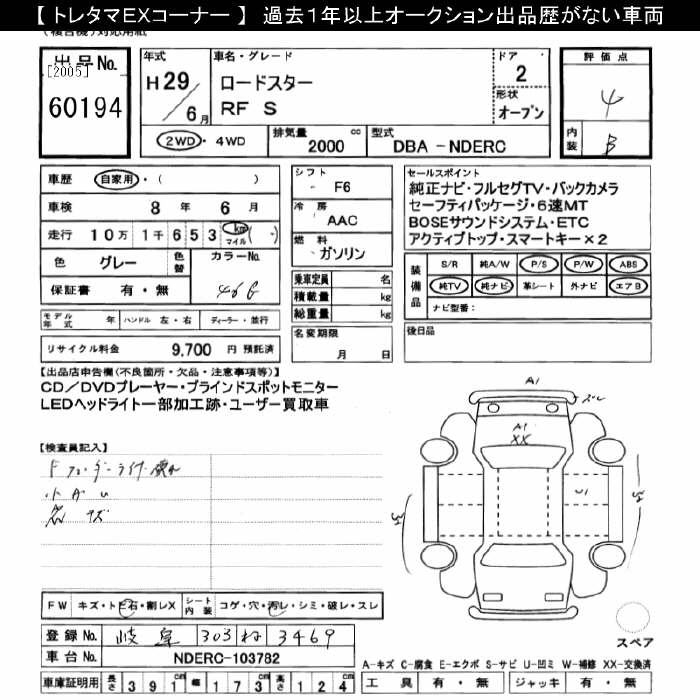 【 トレタマEXコーナー 】 過去1年以上オークション出品歴がない車両
出品No.
[2005]
60194
年式
H29/6月
車名・グレード
ロードスター
RF S
ドア
2
形状
オープン
2WD・4WD
排気量 2000 cc
型式 DBA-NDERC
評価点
4
内装
B
車歴 自家用・( )
車検 8年 6月
走行 10万 1千 6 5 3 km マイル ( )
色 グレー 色替 カラーNo. 46G
保証書 有・無
モデル年式 年 ハンドル 左・右 ディーラー・並行
リサイクル料金 9,700 円 預託済
シフト F6
冷房 AAC
燃料 ガソリン
乗車定員 名
積載量 kg
総重量 kg
名変期限
月 日
セールスポイント
純正ナビ・フルセグTV・バックカメラ
セーフティパッケージ・6速MT
BOSEサウンドシステム・ETC
アクティブトップ・スマートキー×2
装備品
S/R 純A/W P/S P/W ABS
純TV 純ナビ 革シート 外ナビ エアB
ナビ型番:
後日品
【出品店申告欄(不良箇所・欠品・注意事項等)】
CD/DVDプレーヤー・ブラインドスポットモニター
LEDヘッドライト一部加工跡・ユーザー買取車
【検査員記入】
小キズ
A1
A1
XX
U1
FW キズ・トビ石・割レX シート内装 コゲ・穴・汚レ・シミ・破レ・スレ
登録No. 岐阜 303 ね 3469
車台No. NDERC-103782
車庫証明用 長さ 391cm 幅 173cm 高さ 124cm
スペア
A-キズ C-腐食 E-エクボ S-サビ U-凹ミ W-補修 XX-交換済
工具 有・無 ジャッキ 有・無